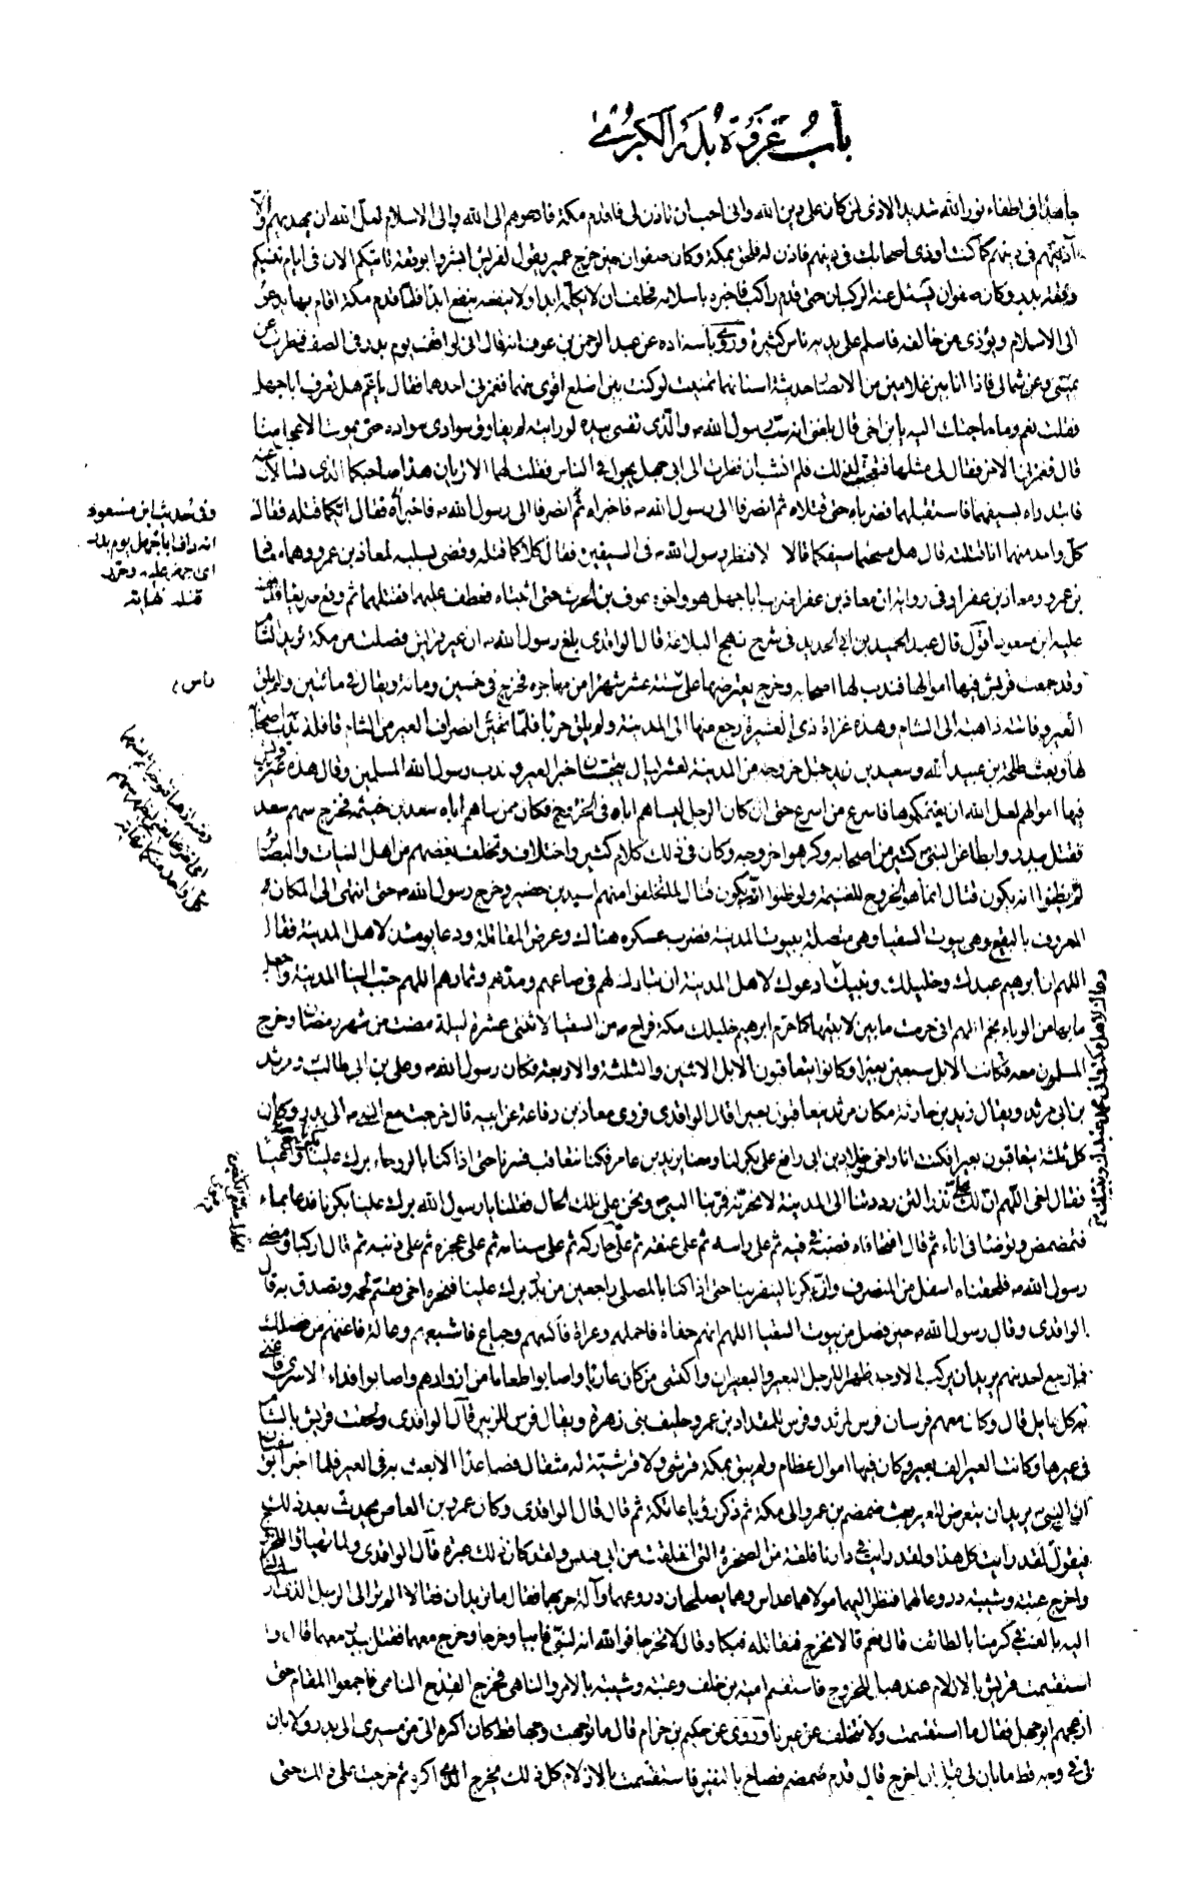 باب غزوة بدر الكبرى
جاهدا في اطفاء نور الله شديد الاذى لمن كان على دين الله وانى احب ان تاذن لى فاقدم مكة فادعوهم الى الله والى الاسلام لعل الله ان يهديهم والا
آذيتهم في دينهم كما كنت اوذى اصحابك في دينهم فاذن له فلحق بمكة وكان صفوان حين خرج عمير يقول لقريش ابشروا بوقعة تاتيكم الان في ايام تنسيكم
وقعة بدر وكان صفوان يسئل عنه الركبان حتى قدم راكب فاخبره باسلامه فحلف ان لا يكلمه ابدا ولا ينفعه بنفع ابدا فلما قدم مكة اقام بها يدعو
الى الاسلام ويؤذى من خالفه فاسلم على يديه ناس كثيرة وروى باسناده عن عبد الرحمن بن عوف انه قال انى لواقف يوم بدر في الصف فنظرت عن
يمينى وعن شمالى فاذا انا بين غلامين من الانصار حديثة اسنانهما تمنيت لو كنت بين اضلع اقوى منهما فغمزنى احدهما فقال يا عم هل تعرف ابا جهل
فقلت نعم وما حاجتك اليه يا ابن اخى قال بلغنى انه سب رسول الله ص والذى نفسى بيده لو رايته لم يفارق سوادى سواده حتى يموت الاعجل منا
قال فغمزنى الاخر فقال لى مثلها فتعجبت لذلك فلم انشب ان نظرت الى ابى جهل يجول في الناس فقلت لهما الا تريان هذا صاحبكما الذى تسالان عنه
فابتدراه بسيفهما فاستقبلهما فضرباه حتى قتلاه ثم انصرفا الى رسول الله ص فاخبراه ثم انصرفا الى رسول الله ص فاخبراه فقال ايكما قتله فقال
كل واحد منهما انا قتلته قال هل مسحتما سيفكما قالا لا فنظر رسول الله ص في السيفين فقال كلاكما قتله وقضى بسلبه لمعاذ بن عمرو وهما معاذ
بن عمرو ومعاذ بن عفرا وفي رواية ان معاذ بن عفرا ضرب ابا جهل هو واخوه عوف بن الحرث حتى اثبتاه فعطف عليهما فقتلهما ثم وقع صريعا فدفف
عليه ابن مسعود اقول قال عبد الحميد بن ابى الحديد في شرح نهج البلاغة قال الواقدى بلغ رسول الله ص ان عير قريش فصلت من مكة تريد الشام
وقد جمعت قريش فيها اموالها فندب لها اصحابه وخرج يعترضها على ستة عشر شهرا من مهاجره فخرج في خمسين ومائة ويقال في مائتين ولم يلق
العير وفاتته ذاهبة الى الشام وهذه غزاة ذى العشيرة رجع منها الى المدينة ولم يلق حربا فلما تحين انصراف العير من الشام قافلة ندب اصحابه
لها وبعث طلحة بن عبيد الله وسعيد بن زيد قبل خروجه من المدينة بعشر ليال يتجسسان اخبر العير وندب رسول الله المسلمين وقال هذه عير قريش
فيها اموالهم لعل الله ان يغنمكموها فاسرع من اسرع حتى ان كان الرجل ليساهم اباه في الخروج فكان ممن ساهم اباه سعد بن خيثمة فخرج سهم سعد
فقتل ببدر وابطا عن النبى ص كثير من اصحابه وكرهوا خروجه وكان في ذلك كلام كثير واختلاف وتخلف بعضهم من اهل النيات والبصائر
لم يظنوا انه يكون قتال انما هو الخروج للغنيمة ولو ظنوا انه يكون قتال لما تخلفوا منهم اسيد بن حضير وخرج رسول الله ص حتى انتهى الى المكان
المعروف بالبقع وهى بيوت السقيا وهى متصلة ببيوت المدينة فضرب عسكره هناك وعرض المقاتلة ودعا يومئذ لاهل المدينة فقال
اللهم ان ابرهيم عبدك وخليلك ونبيك ادعوك لاهل المدينة ان تبارك لهم في صاعهم ومدهم وثمارهم اللهم حبب الينا المدينة واجعل
ما بها من الوباء بخم اللهم انى حرمت ما بين لابتيها كما حرم ابرهيم خليلك مكة فراح ص من السقيا لاثنتى عشرة ليلة مضت من شهر رمضان وخرج
المسلمون معه فكانت الابل سبعين بعيرا وكانوا يتعاقبون الابل الاثنين والثلثة والاربعة فكان رسول الله ص وعلى بن ابى طالب ومرثد
بن ابى مرثد ويقال زيد بن حارثة مكان مرثد يتعاقبون بعيرا قال الواقدى فروى معاذ بن رفاعة عن ابيه قال خرجت مع النبى ص الى بدر وكان
كل ثلثة يتعاقبون بعيرا فكنت انا واخى خلاد بن ابى رافع على بكر لنا ومعنا يزيد بن عامر فكنا نتعاقب فسرنا حتى اذا كنا بالروحاء برك علينا واعيا
فقال اخى اللهم ان لك على نذرا لئن رددتنا الى المدينة لانحرنه فمر بنا النبى ص ونحن على تلك الحال فقلنا يا رسول الله برك علينا بكرنا فدعا بماء
فتمضمض وتوضا في اناء ثم قال افتحا فاه فصبه في فيه ثم على راسه ثم على عنقه ثم على حاركه ثم على سنامه ثم على عجزه ثم على ذنبه ثم قال اركبا ومضى
رسول الله ص فلحقناه اسفل من المنصرف وان بكرنا لينفر بنا حتى اذا كنا بالمصلى راجعين من بدر برك علينا فنحره اخى فقسم لحمه وتصدق به قال
الواقدى وقال رسول الله ص حين فصل من بيوت السقيا اللهم انهم حفاة فاحملهم وعراة فاكسهم وجياع فاشبعهم وعالة فاغنهم من فضلك
فما رجع احد منهم يريد ان يركب الا وجد ظهرا للرجل البعير والبعيران واكتسى من كان عاريا واصابوا طعاما من ازوادهم واصابوا فداء الاسرى فاغنى
به كل عايل قال وكان معهم فرسان فرس لمرثد وفرس للمقداد بن عمرو حليف بنى زهرة ويقال فرس للزبير قال الواقدى ولحقت قريش بالشام
في عيرها وكانت العير الف بعير وكان فيها اموال عظام ولم يبق بمكة قرشى ولا قرشية له مثقال فصاعدا الا بعث به في العير فلما اخبر ابو سفيان
ان النبى ص يريد ان يتعرض للعير بعث ضمضم بن عمرو الى مكة ثم ذكر رؤيا عاتكة ثم قال قال الواقدى وكان عمرو بن العاص يحدث بعد ذلك
فيقول لقد رايت كل هذا ولقد رايت في دارنا فلقة من الصخرة التى انفلقت من ابى قبيس ولقد كان ذلك عبرة قال الواقدى ولما تهياوا للخروج
واخرج عتبة وشيبة دروعا لهما فنظر اليهما مولاهما عداس وهما يصلحان دروعهما وآلة حربهما فقال ما تريدان فقالا الم تر الى الرجل الذى ارسلناك
اليه بالعنب في كرمنا بالطائف قال نعم قالا نخرج فنقاتله فبكا وقال لا تخرجا فوالله انه لنبى فابيا وخرجا وخرج معهما فقتل ببدر معهما قال و
استقسمت قريش بالازلام عند هبل للخروج فاستقسم امية بن خلف وعتبة وشيبة بالامر والناهى فخرج القدح الناهى فاجمعوا المقام حتى
ازعجهم ابو جهل فقال ما استقسمت ولا نتخلف عن عيرنا وروى عن حكيم بن حزام قال ما توجهت وجها قط كان اكره الى من مسيرى الى بدر ولا بان
لى في وجه قط ما بان لى قبل ان اخرج قال قدم ضمضم فصاح بالنفير فاستقسمت بالازلام كل ذلك يخرج الذى اكره ثم خرجت على ذلك حتى
وفى حديث ابن مسعود
انه داف ابا جهل يوم بدر
اى جهز عليه وحرر
قتله نهاية
ناس م
دعاك لاهل مكة وانى محمد عبدك ونبيك م